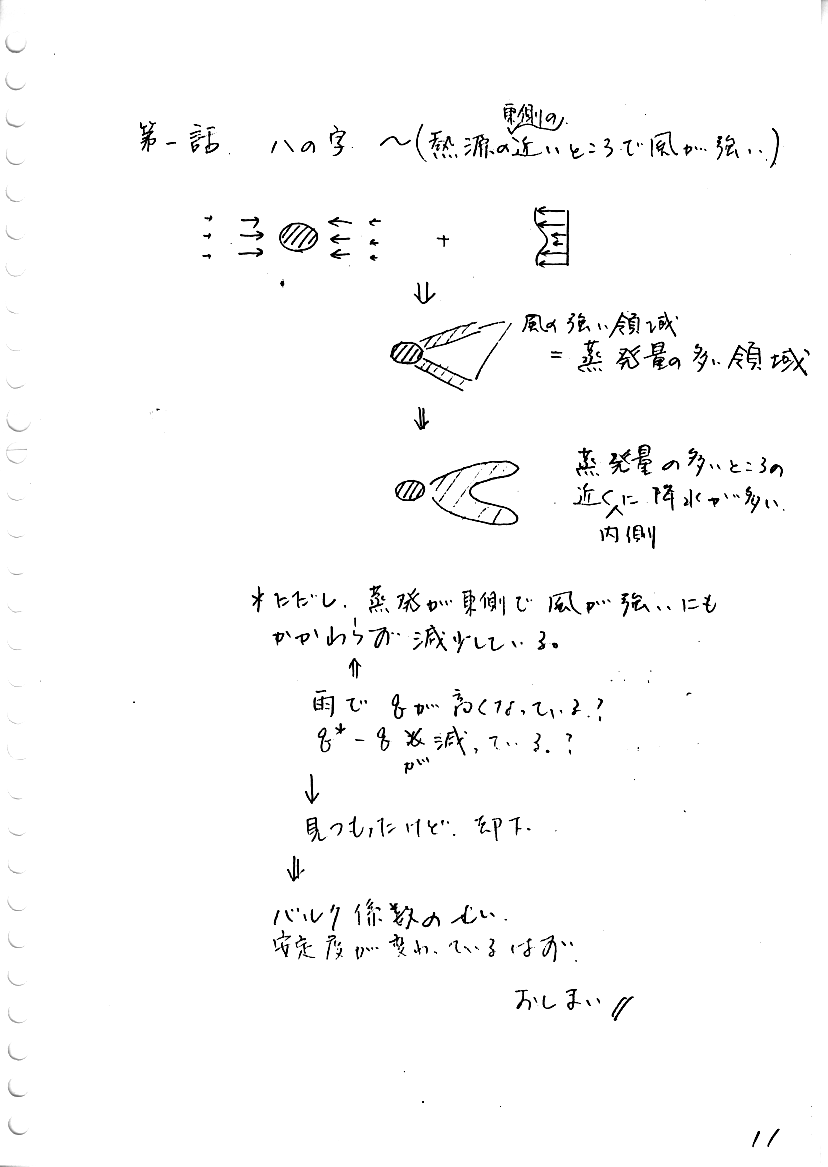 第一話. ハの字 ～(熱源の東側の近いところで風が強い.)
+
⇓
風の強い領域
= 蒸発量の多い領域
⇓
蒸発量の多いところの
近く内側に降水が多い.
*ただし. 蒸発が東側で風が強いにも
かかわらず減少している。
⇑
雨で qが高くなっている?
q* - q が減っている.?
↓
見つもったけど. 却下.
⇓
バルク係数のせい.
安定度が変わっているはず.
おしまい〃
11